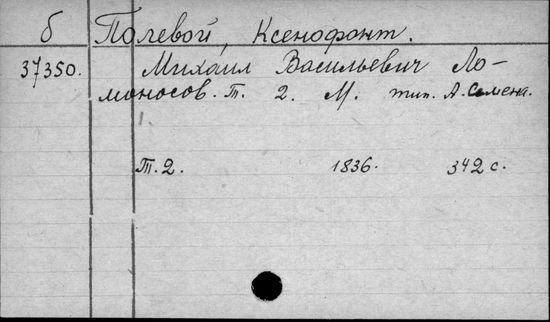 б Полевой, Ксенофонт.
37350. Михаил Васильевич Ло-
моносов. Т. 2. М. тип. А. Семена.
Т. 2. 1836. 342 с.